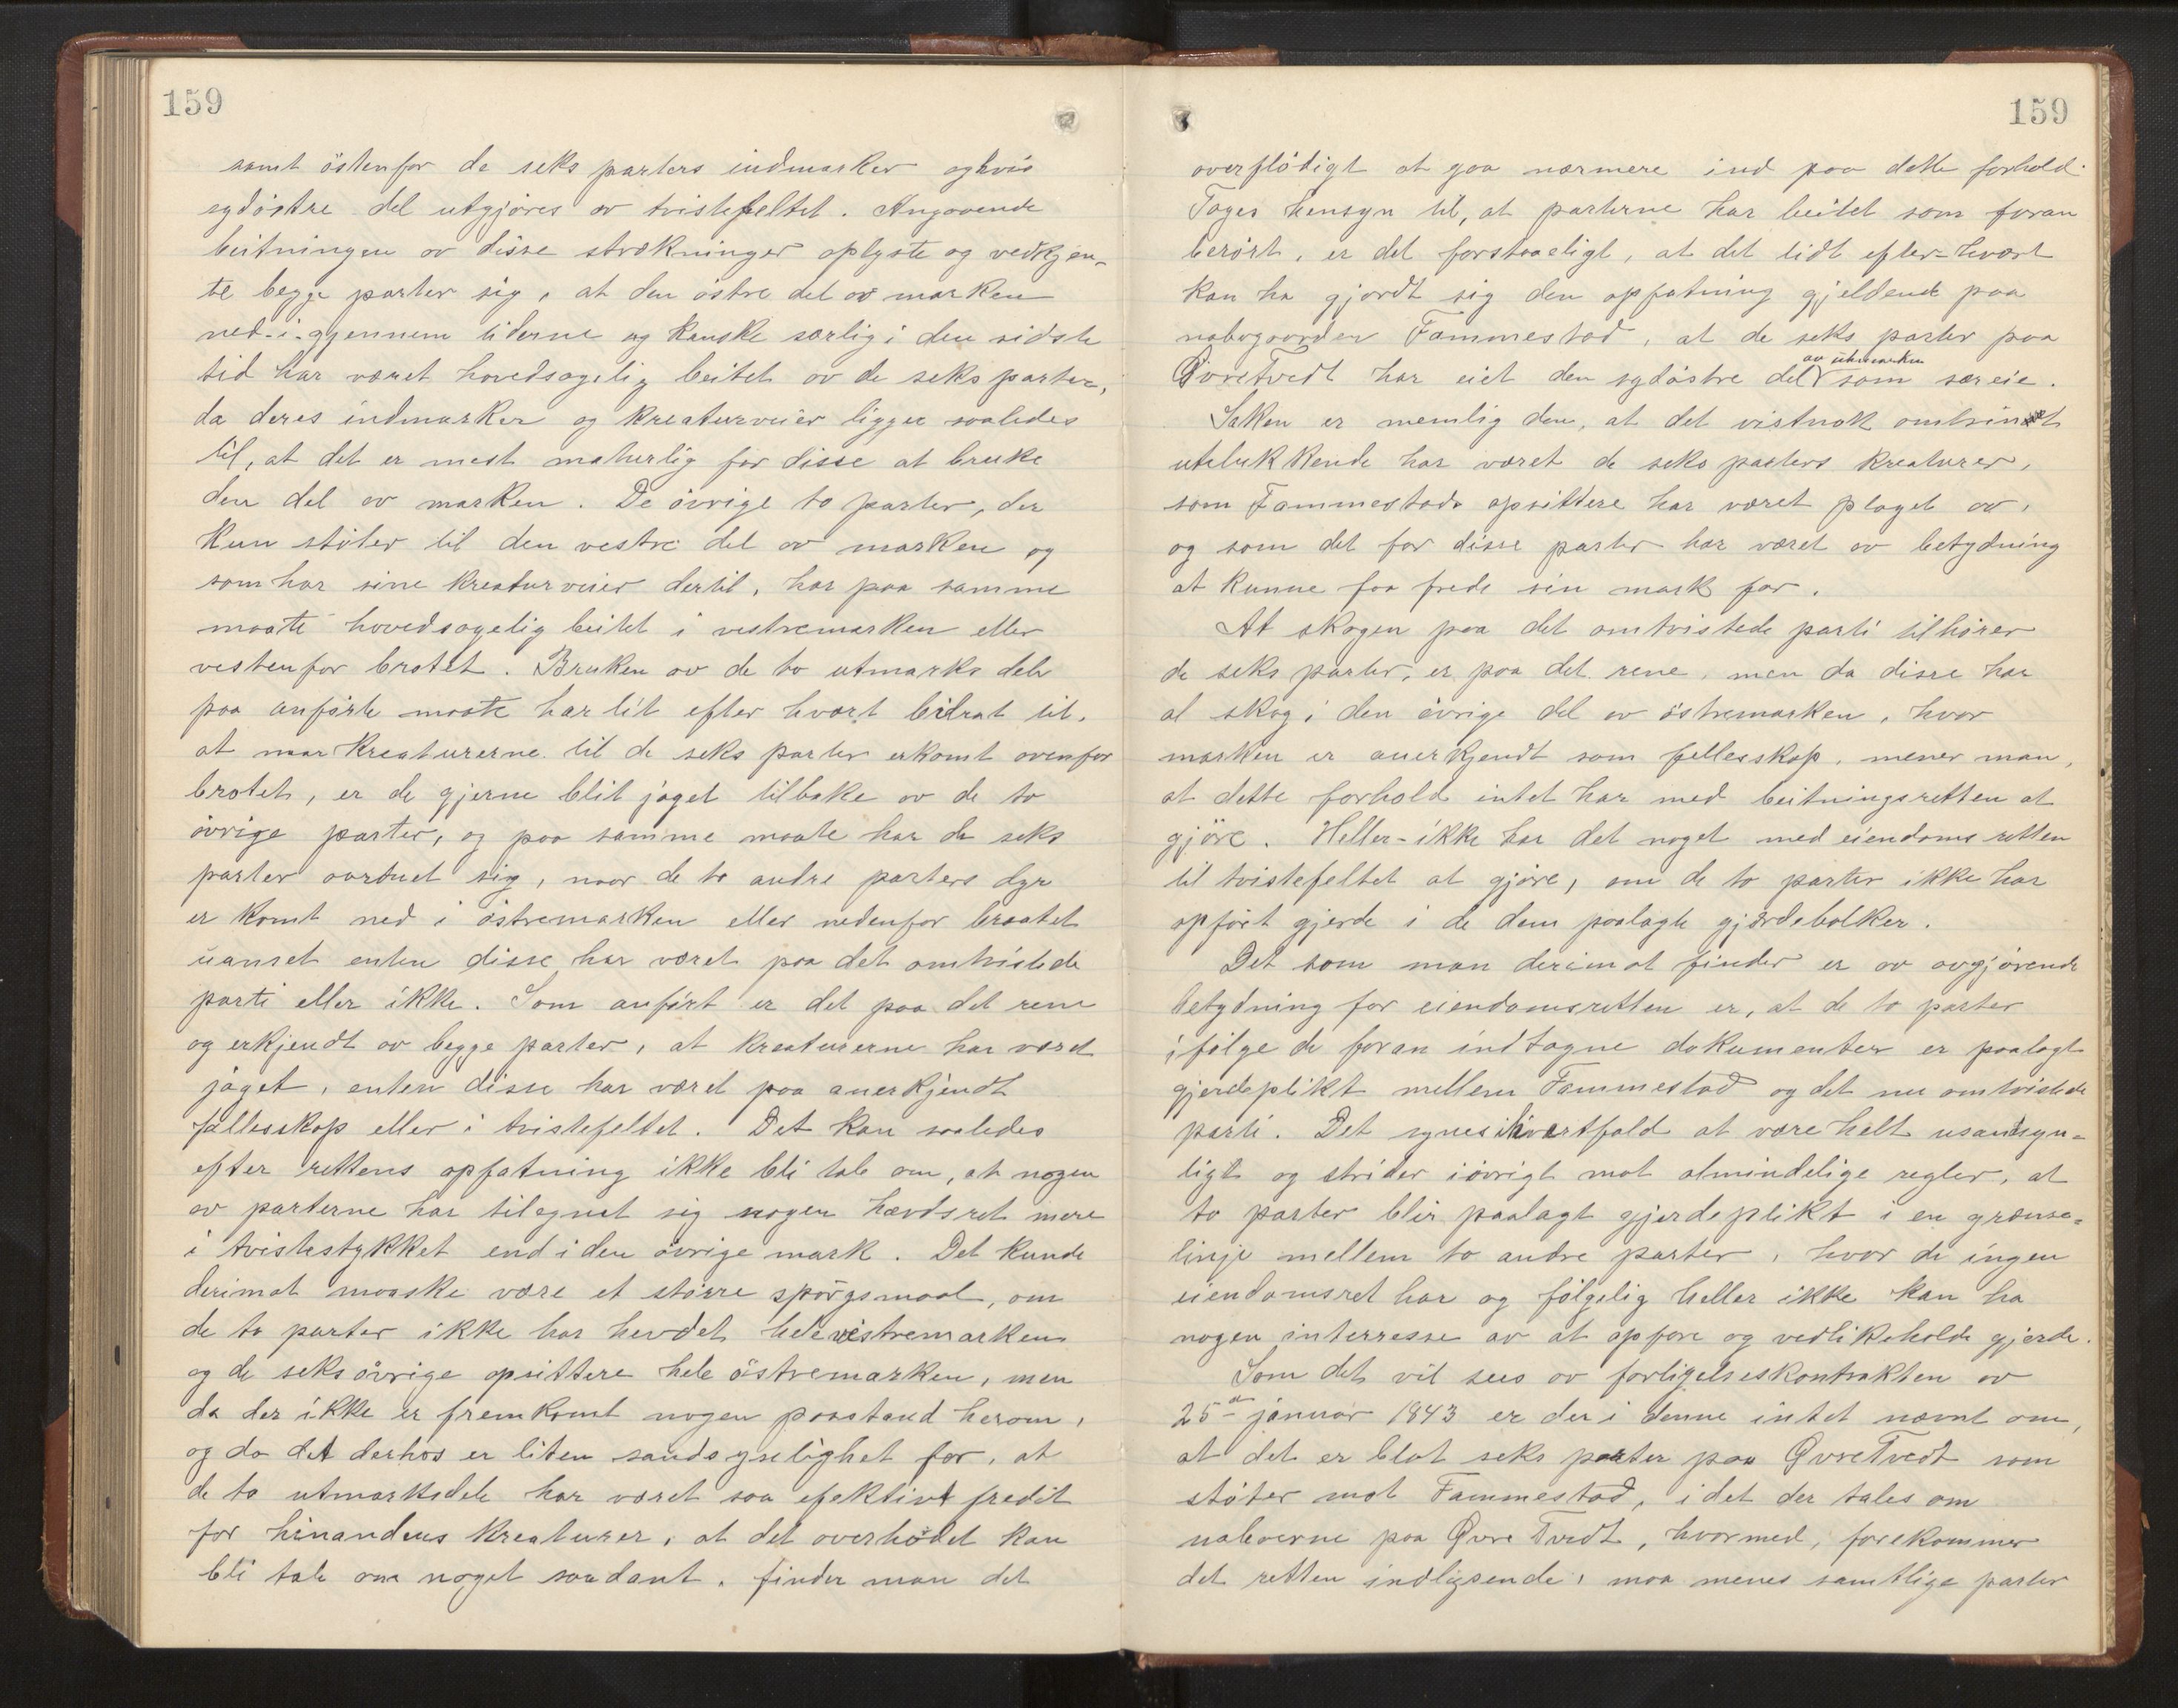 159
samt östenfor de seks parters indmarker og hvis
sydöstre del utgjöres av tvistefeltet. Angaaende
beitningen av disse strækninger oplyste og vedkjen-
te begge parter sig, at den östre del av marken
ned-i-gjennem tiderne og kanske særlig i den sidste
tid har været hovedsagelig beitet av de seks parter,
da deres indmarker og kreaturveier ligger saaledes
til, at det er mest naturlig for disse at bruke
den del av marken. De övrige to parter, der
kun stöter til den vestre del av marken og
som har sine kreaturveier dertil, har paa samme
maate hovedsagelig beitet i vestremarken eller
vestenfor brotet. Bruken av de to utmarks dele
paa anförte maate har lit efter hvært bidrat til,
at naar kreaturerne til de seks parter er komt ovenfor
brotet, er de gjerne blit jaget tilbake av de to
övrige parter, og paa samme maate har de seks
parter aartnet sig, naar de to andre parters dyr
er komt ned i östremarken eller nedenfor braatet
uanset enten disse har været paa det omtvistede
parti eller ikke. Som anfört er det paa det rene
og erkjendt av begge parter, at kreaturerne har været
jaget, enten disse har været paa anerkjendt
fællesskap eller i tvistefeltet. Det kan saaledes
efter rettens opfatning ikke bli tale om, at nogen
av parterne har tilegnet sig nogen hævdsret mere
i tvistestykket end i den övrige mark. Det kunde
derimot maaske være et större spörgsmaal, om
de to parter ikke har hevdet hele vestremarken
og de seks övrige opsittere hele östremarken, men
da der ikke er fremkomt nogen paastand herom,
og da det derhos er liten sandsynlighet for, at
de to utmarksdele har været saa efektivt fredet
for hinandens kreaturer, at det overhodet kan
bli tale om noget saadant, finder man det
159
overflödigt at gaa nærmere ind paa dette forhold.
Tages hensyn til, at parterne har beitet som foran
berört, er det forstaaeligt, at det lidt efter-hvært
kan ha gjordt sig den opfatning gjeldende paa
nabogaarden Fammestad, at de seks parter paa
av utmarken
Øvretvedt har eiet den sydöstre del som særeie.
Saken er nemlig den, at det vistnok omtrent
utelukkende har været de seks parters kreaturer,
som Fammestads opsittere har været plaget av,
og som det for disse parter har været av betydning
at kunne faa frede sin mark for.
At skogen paa det omtvistede parti tilhörer
de seks parter, er paa det rene, men da disse har
al skog i den övrige del av östremarken, hvor
marken er anerkjendt som fellesskap, mener man,
at dette forhold intet har med beitningsretten at
gjöre. Heller-ikke har det noget med eiendomsretten
til tvistefeltet at gjöre, om de to parter ikke har
opfört gjerde i de dem paalagte gjærdebolker.
Det som man derimot finder er av avgjörende
betydning for eiendomsretten er, at de to parter
ifölge de foran indtagne dokumenter er paalagt
gjerdeplikt mellem Fammestad og det nu omtvistede
parti. Det synes ihvertfald at være helt usandsyn-
ligt og strider iövrigt mot almindelige regler, at
to parter blir paalagt gjerdeplikt i en grænse-
linje mellem to andre parter, hvor de ingen
eiendomsret har og fölgelig heller ikke kan ha
nogen interresse av at opföre og vedlikeholde gjerde.
Som det vil sees av forligelseskontrakten av
25de januar 1843 er der i denne intet nævnt om,
at det er blot seks parter paa Øvre Tvedt som
stöter mot Fammestad, idet der tales om
naboerne paa Øvre Tvedt, hvormed, forekommer
det retten indlysende, maa menes samtlige parter